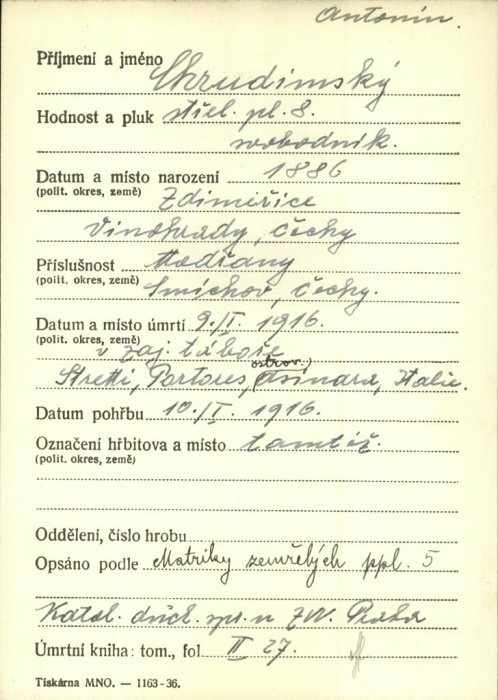 Antonín.
Příjmení a jméno Chrudimský
Hodnost a pluk střel. pl. 8.
svobodník.
Datum a místo narození 1886
(polit. okres, země) Zdiměřice
Vinohrady, Čechy
Příslušnost Modřany
(polit. okres, země) Smíchov, Čechy.
Datum a místo úmrtí 9./I. 1916.
(polit. okres, země) v zaj. táboře
ostrov
Stretti, Portores, Asinara, Italie.
Datum pohřbu 10./I. 1916.
Označení hřbitova a místo tamtéž.
(polit. okres, země)
Oddělení, číslo hrobu
Opsáno podle Matriky zemřelých ppl. 5
Katol. duch. spr. u ZVV. Praha
Úmrtní kniha: tom., fol. II 27.
Tiskárna MNO. — 1163-36.